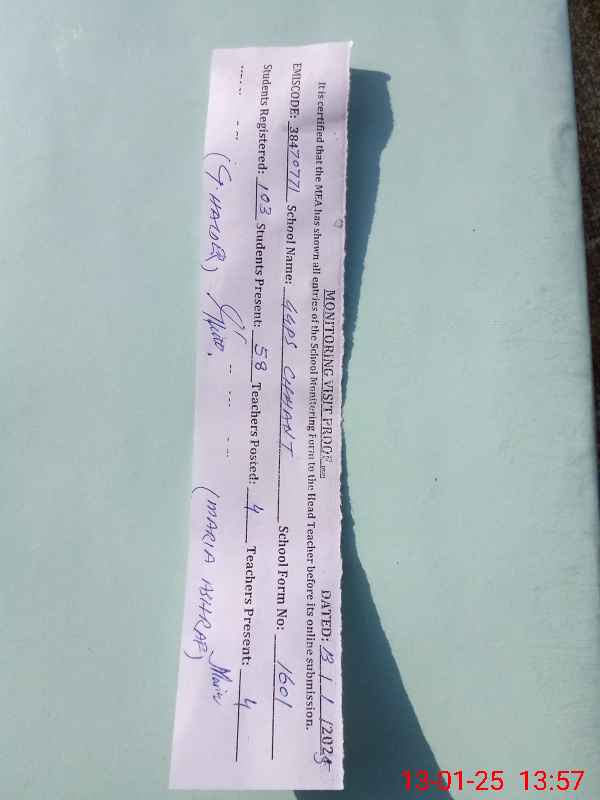 MONITORING VISIT PROOF DATED: 13 / 1 /2025
It is certified that the MEA has shown all entries of the School Monitoring Form to the Head Teacher before its online submission.
EMISCODE: 38470771 School Name: GGPS CHHANT School Form No: 1601
Students Registered: 103 Students Present: 58 Teachers Posted: 4 Teachers Present: 4
(MARIA ASHRAF) Maria
13-01-25 13:57